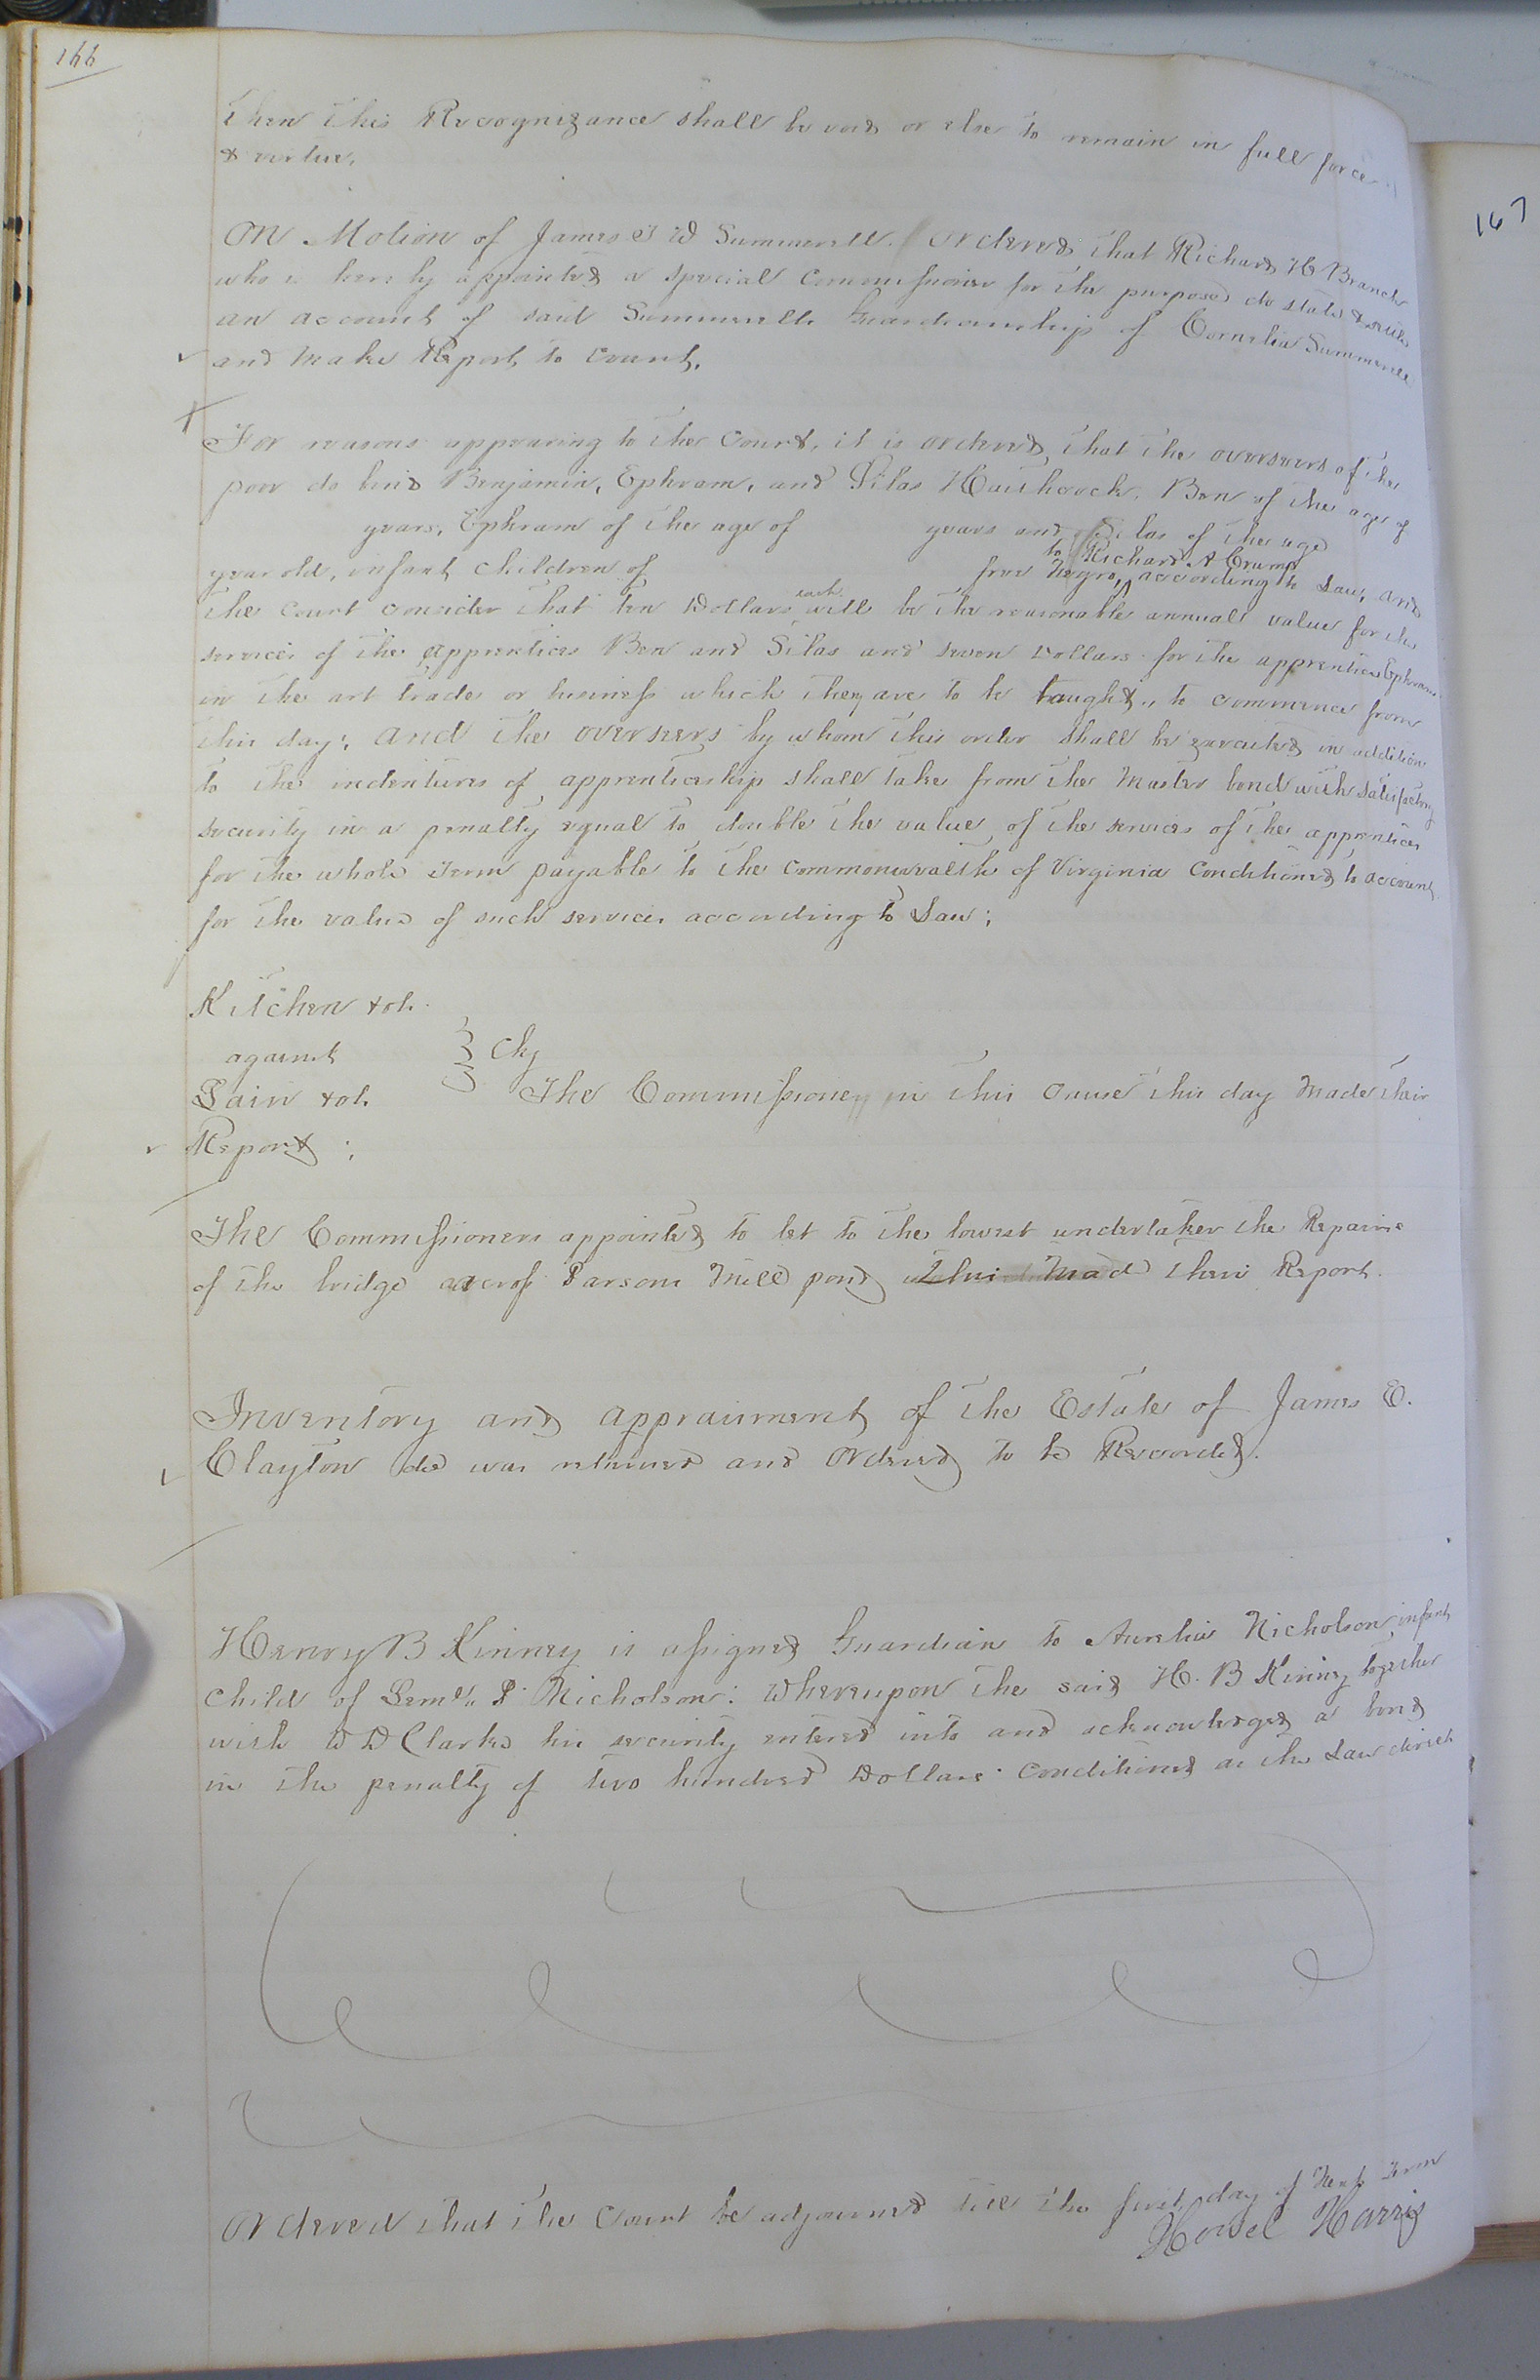 166
then this Recognizance shall be void or else to remain in full force
& virtue.
On Motion of James W Summerell. Ordered that Richard H Branch
who is hereby appointed a special Commissioner for the purpose do state & settle
an account of said Summerell Guardianship of Cornelia Summerell
and make Report to Court.
For reasons appearing to the Court, it is ordered, that the overseers of the
poor do bind Benjamin, Ephram, and Silas Haithcock. Ben of the age of
years, Ephram of the age of years and Silas of the age
to Richard A Crump
year old, infant children of free Negro, according to Law, and
the Court consider that ten Dollars each will be the reasonable annual value for the
services of the apprentices Ben and Silas and seven Dollars for the apprentice Ephram
in the art trade or business which they are to be taught, to commence from
this day; and the overseers by whom this order shall be executed in addition
to the indentures of apprenticeship shall take from the Master bond with satisfactory
security in a penalty equal to double the value of the services of the apprentices
for the whole term payable to the Commonwealth of Virginia Conditioned to account
for the value of such services according to Law;
Kitchen & ot.
against } Chy
Lain & ot. The Commissioners in this Cause this day made their
Report;
The Commissioners appointed to let to the lowest undertaker the Repairs
of the bridge across Parsons Mill pond this Mad their Report.
Inventory and appraisment of the Estate of James E.
Clayton decd was returned and Ordered to be Recorded.
Henry B Kinney is assigned Guardian to Aurelia Nicholson, infant
child of Leml. P. Nicholson: Whereupon the said H. B Kinney together
with W D Clarke his security entered into and acknowledged a bond
in the penalty of two hundred Dollars Conditioned as the Law directs
Ordered that the Court be adjourned till the first day of Next Term
Howel Harris
167